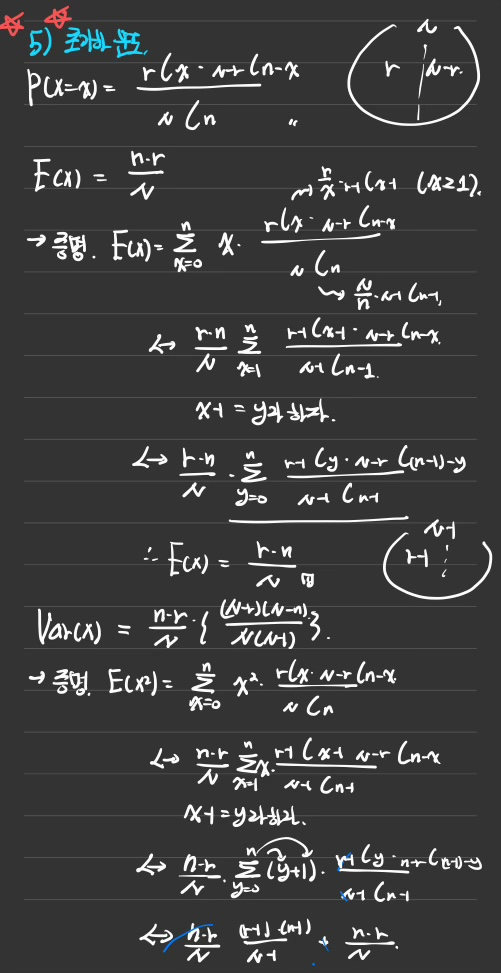 5) 초기하 분포.
P(X=x) = rCx · N-rCn-x / NCn 〃
N
r N-r
E(X) = n·r / N
→ r/x · r-1Cx-1 (x≥1).
→ 증명. E(X) = Σ_{x=0}^{n} x · rCx · N-rCn-x / NCn
→ N/n · N-1Cn-1,
↔ r·n/N Σ_{x=1}^{n} r-1Cx-1 · N-rCn-x / N-1Cn-1.
x-1 = y라 하자.
↔ r·n/N · Σ_{y=0}^{n} r-1Cy · N-rC(n-1)-y / N-1Cn-1
N-1
r-1
∴ E(X) = r·n / N
Var(X) = n·r/N · { (N-r)(N-n) / N(N-1) }.
→ 증명. E(X²) = Σ_{x=0}^{n} x² · rCx · N-rCn-x / NCn
↔ n·r/N Σ_{x=1}^{n} x · r-1Cx-1 N-rCn-x / N-1Cn-1
x-1 = y라 하자.
↔ n·r/N · Σ_{y=0}^{n} (y+1) · r-1Cy · n-rC(n-1)-y / N-1Cn-1
↔ n·r/N (r-1)·(n-1) / N-1 + n·r/N.